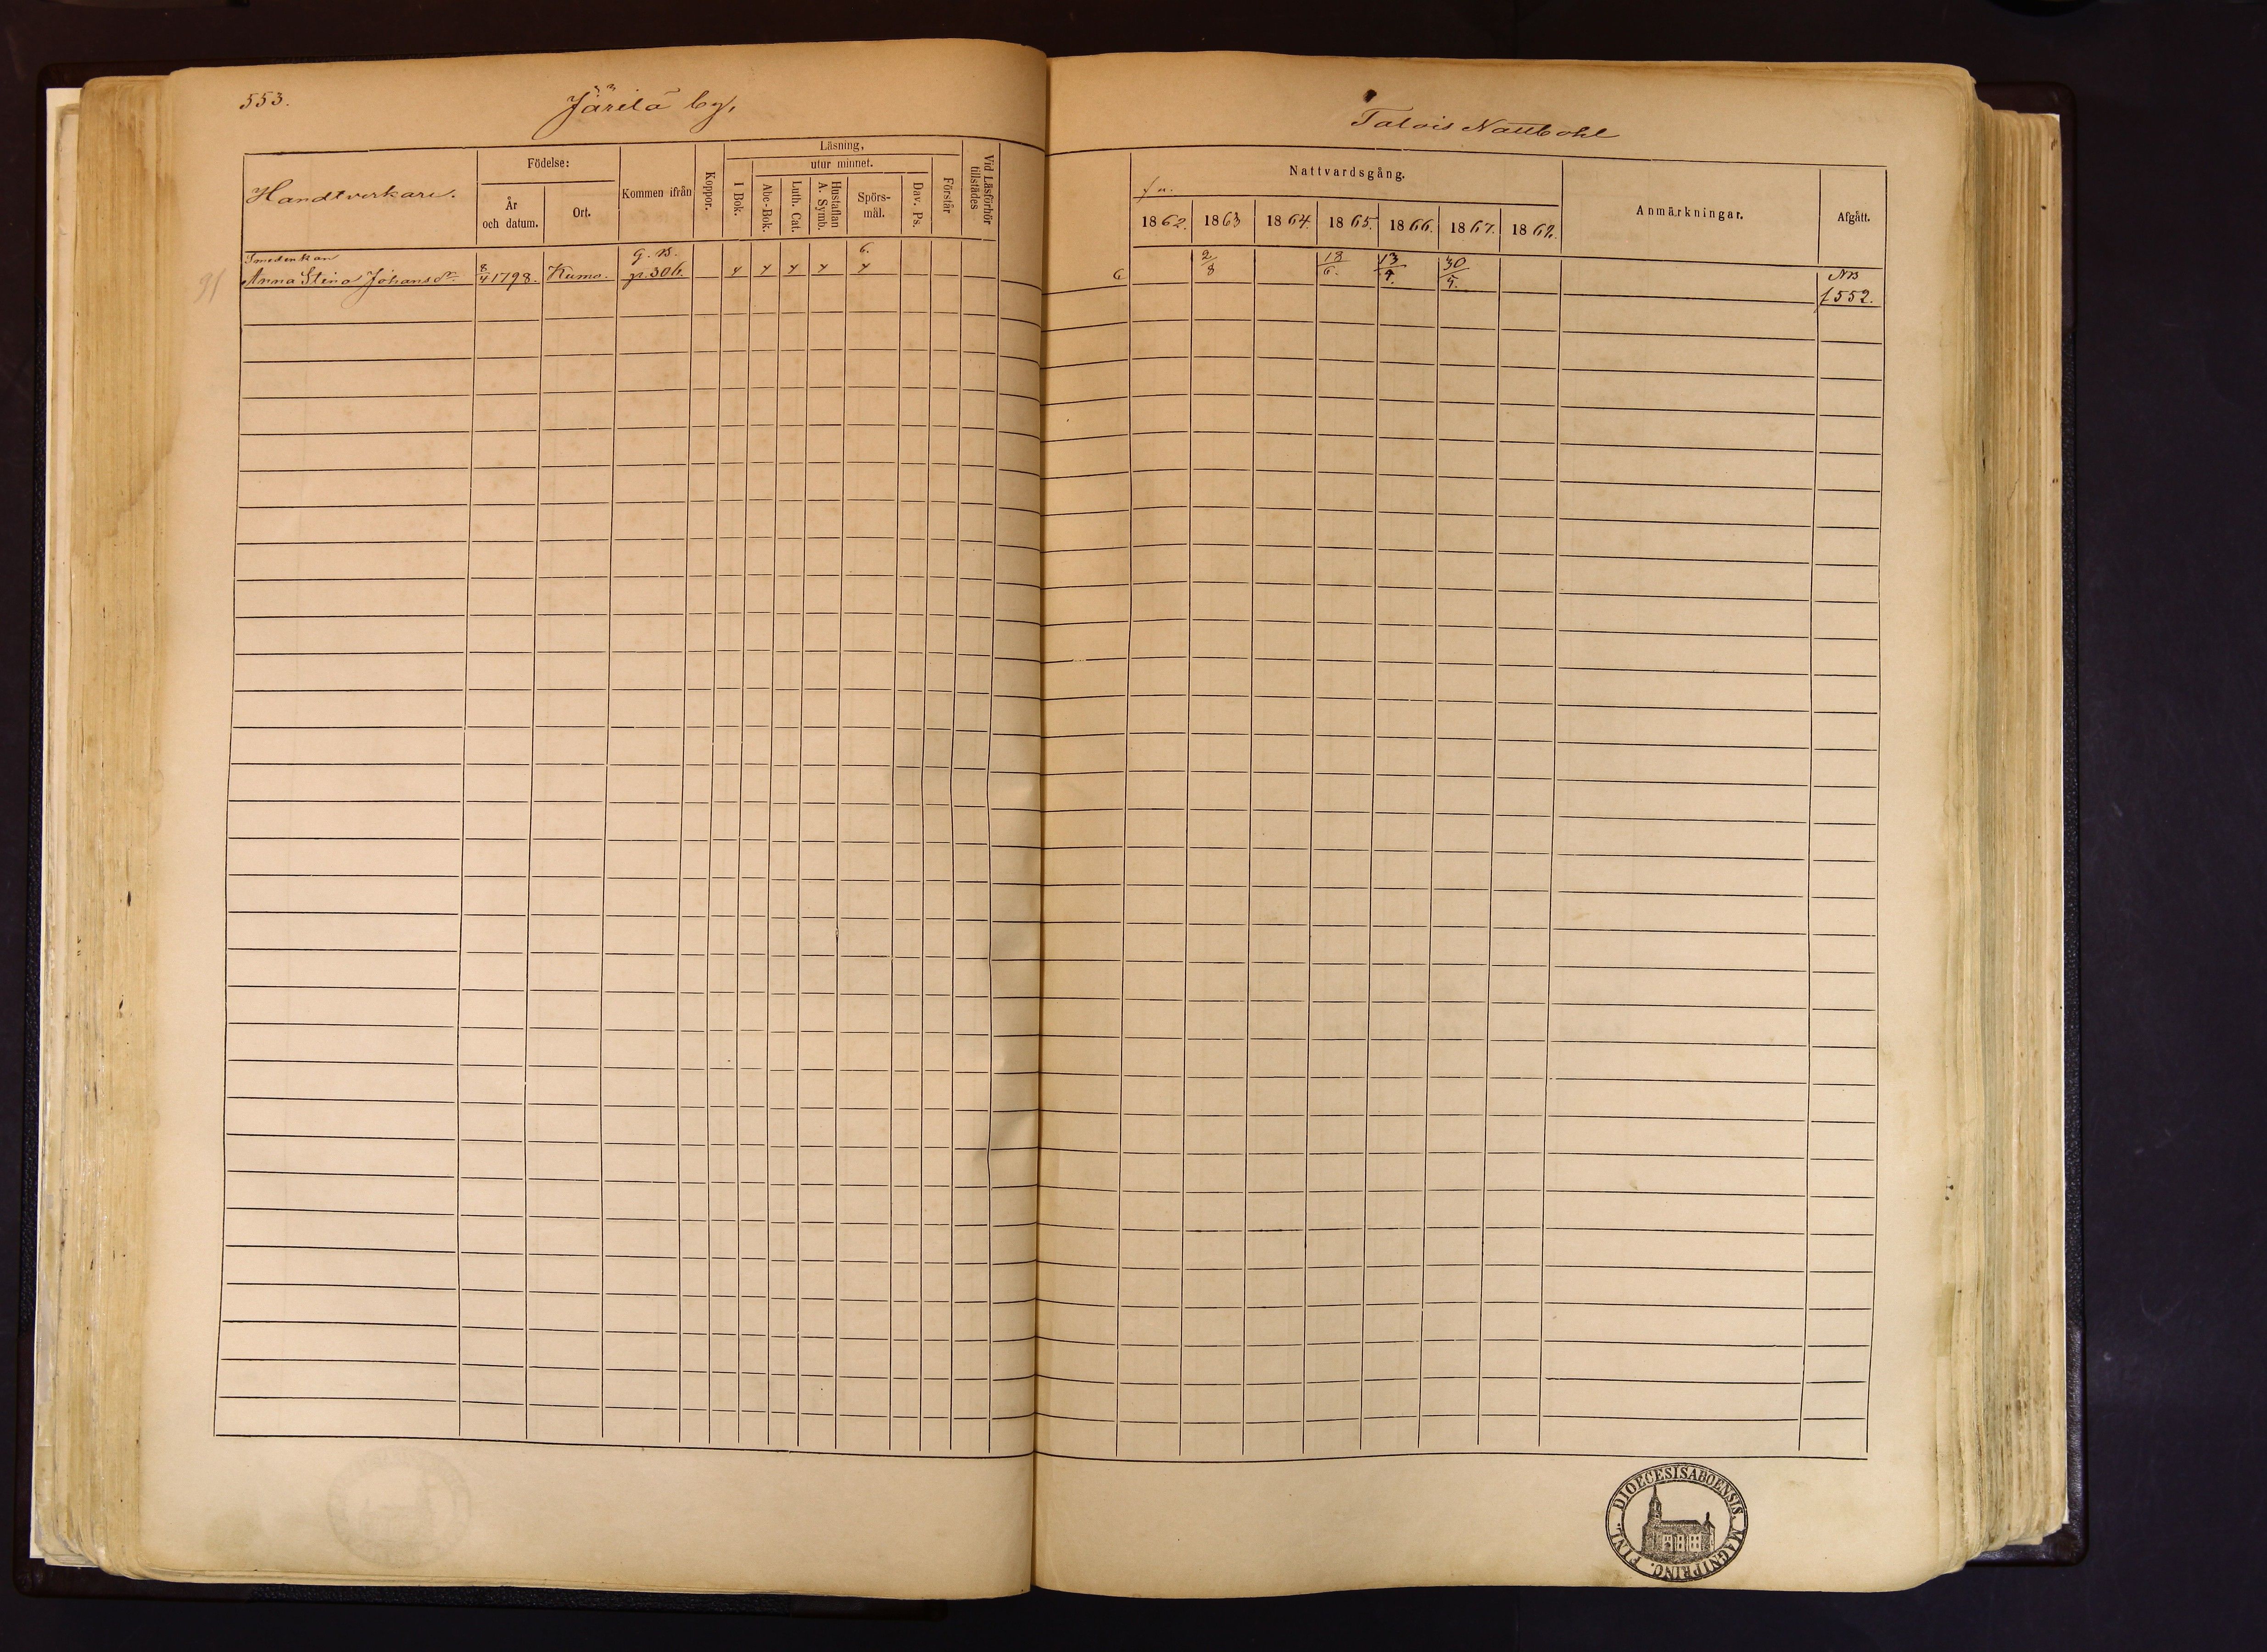 553.
Järilä by,
Talois Nattbohl
Handtverkare.
Födelse:
År
och datum.
Ort.
Kommen ifrån
Koppor.
Läsning,
utur minnet.
I Bok.
Abc-Bok.
Luth. Cat.
Hustaflan
A. Symb.
Spörs-
mål.
Dav. Ps.
Förstår
Vid Läsförhör
tillstädes
Nattvardsgång.
1862. 1863 1864. 1865. 1866. 1867. 1868.
Anmärkningar.
Afgått.
Smedenkan G. B. 6.
Anna Stina Johansdr 8/4 1798. Kumo. p. 306. 2/8 18/6. 13/4. 30/5. NB
f 552.
DIOECESIS ABOENSIS. MAGNI PRINC. FINL.